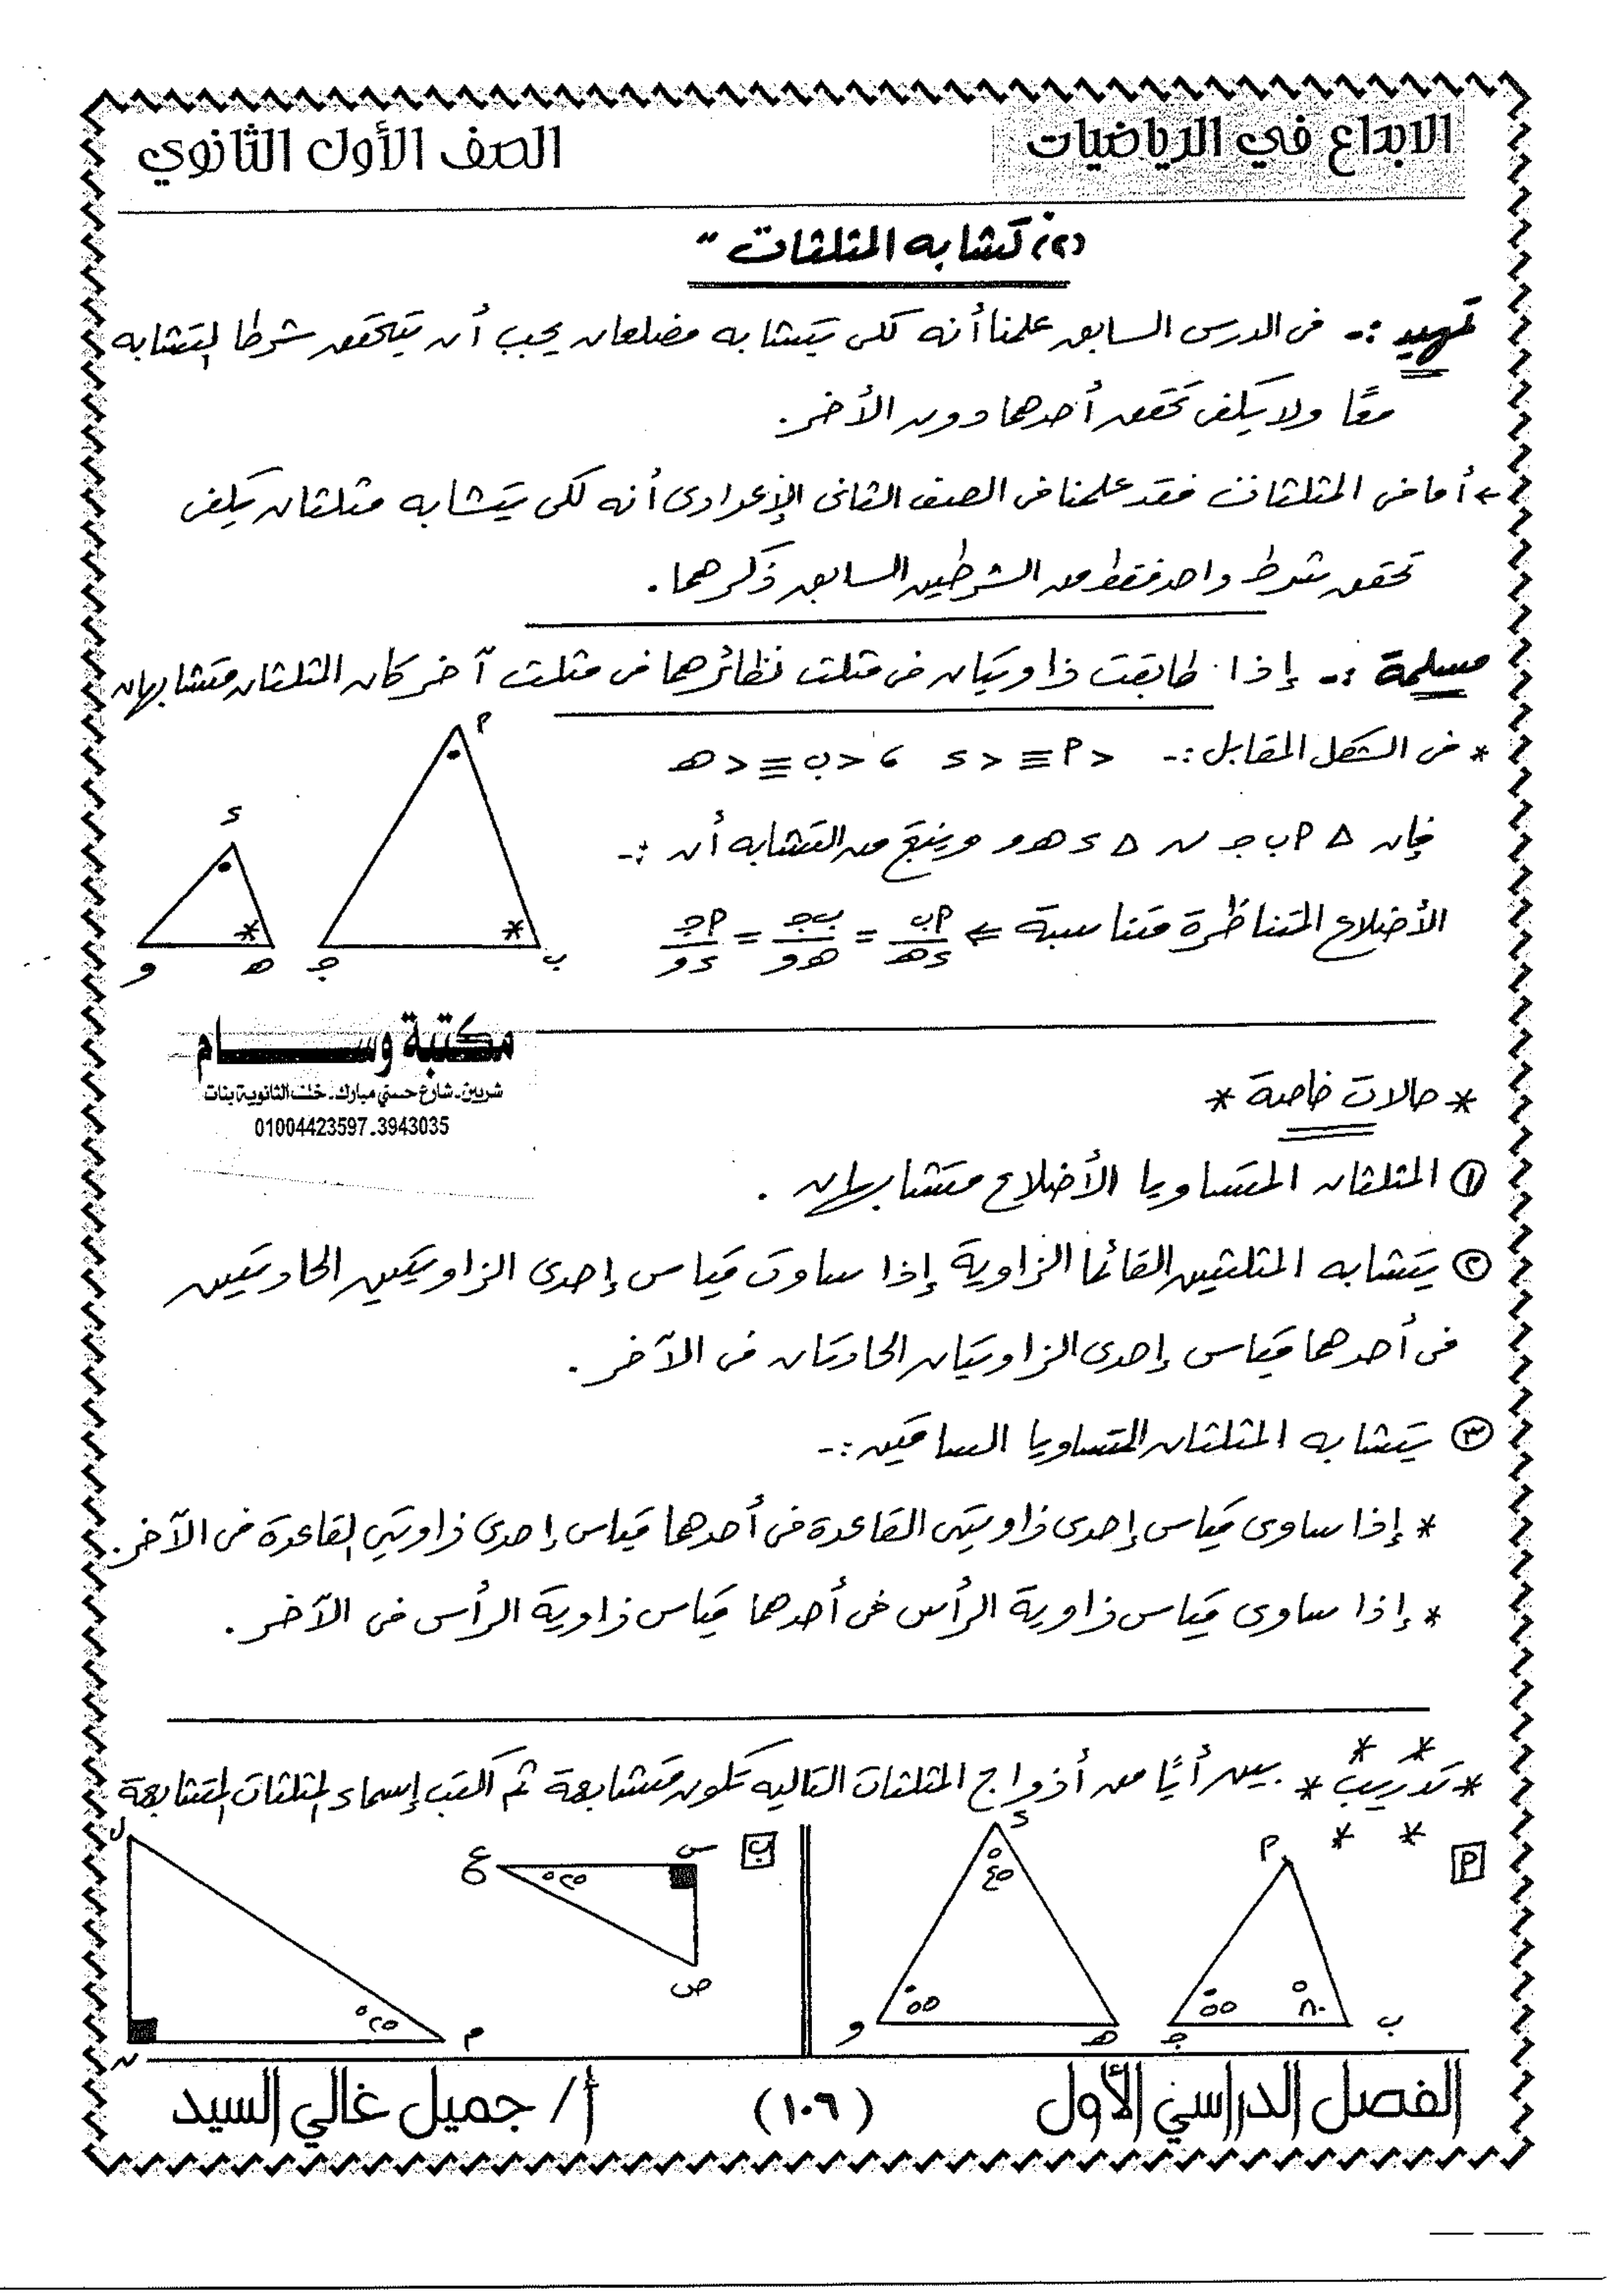 الابداع في الرياضيات
الصف الأول الثانوي
(٢) تشابه المثلثات "
تمهيد :- فى الدرس السابق علمنا أنه لكى يتشابه مضلعان يجب أن يتحقق شرطا التشابه
معًا ولا يكفى تحقق أحدهما دون الأخر.
← أما فى المثلثات فقد علمنا فى الصف الثانى الإعدادى أنه لكى يتشابه مثلثان يكفى
تحقق شرط واحد فقط من الشرطين السابق ذكرهما .
مسلمة :- إذا طابقت زاويتان فى مثلث نظائرهما فى مثلث آخر كان المثلثان متشابهان
* فى الشكل المقابل :- < ٩ ≡ < ء ، < ب ≡ < هـ
فإن Δ ٩ ب جـ ~ Δ ء هـ و وينتج من التشابه أن :-
الأضلاع المتناظرة متناسبة ⇐ ٩ب/ءهـ = ب جـ/هـ و = ٩جـ/ء و
٩
ب
جـ
ء
هـ
و
مكتبة وســـــام
شربين ـ شارع حسني مبارك ـ خلف الثانوية بنات
01004423597 ـ 3943035
* حالات خاصة *
① المثلثان المتساويا الأضلاع متشابهان .
② يتشابه المثلثين القائما الزاوية إذا ساوت قياس إحدى الزاويتين الحادتين
فى أحدهما قياس إحدى الزاويتان الحادتان فى الآخر .
③ يتشابه المثلثان المتساويا الساقين :-
* إذا ساوى قياس إحدى زاويتى القاعدة فى أحدهما قياس إحدى زاويتى القاعدة فى الآخر.
* إذا ساوى قياس زاوية الرأس فى أحدهما قياس زاوية الرأس فى الآخر .
* تدريب * بين أيًا من أزواج المثلثات التاليه تكون متشابهة ثم اكتب إسماء المثلثات المتشابهة
٩
٩
٥٥°
٨٠°
ب
جـ
ء
٤٥°
٥٥°
هـ
و
ب
س
ع
٢٥°
ص
ل
٢٥°
م
ن
الفصل الدراسي الأول
(١٠٦)
أ/ جميل غالي السيد